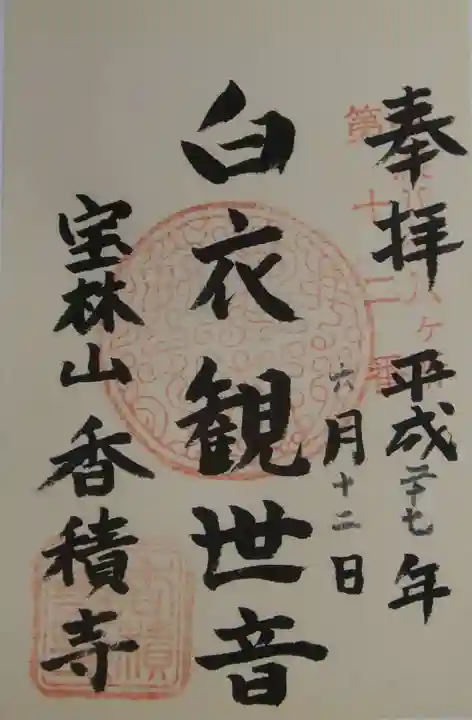 奉拝 平成二十七年
六月十二日
第十二番
白衣観世音
宝林山 香積寺